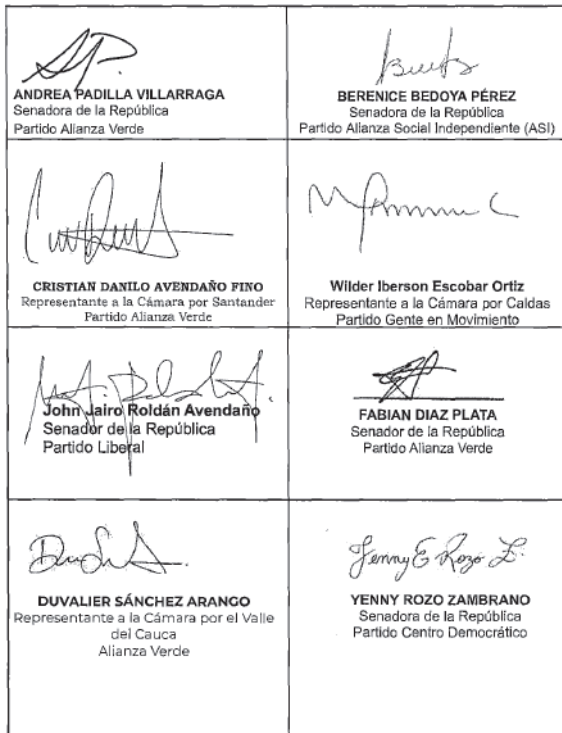 ANDREA PADILLA VILLARRAGA
Senadora de la República
Partido Alianza Verde
BERENICE BEDOYA PÉREZ
Senadora de la República
Partido Alianza Social Independiente (ASI)
CRISTIAN DANILO AVENDAÑO FINO
Representante a la Cámara por Santander
Partido Alianza Verde
Wilder Iberson Escobar Ortiz
Representante a la Cámara por Caldas
Partido Gente en Movimiento
John Jairo Roldán Avendaño
Senador de la República
Partido Liberal
FABIAN DIAZ PLATA
Senador de la República
Partido Alianza Verde
DUVALIER SÁNCHEZ ARANGO
Representante a la Cámara por el Valle
del Cauca
Alianza Verde
Jenny E Rozo Z.
YENNY ROZO ZAMBRANO
Senadora de la República
Partido Centro Democrático